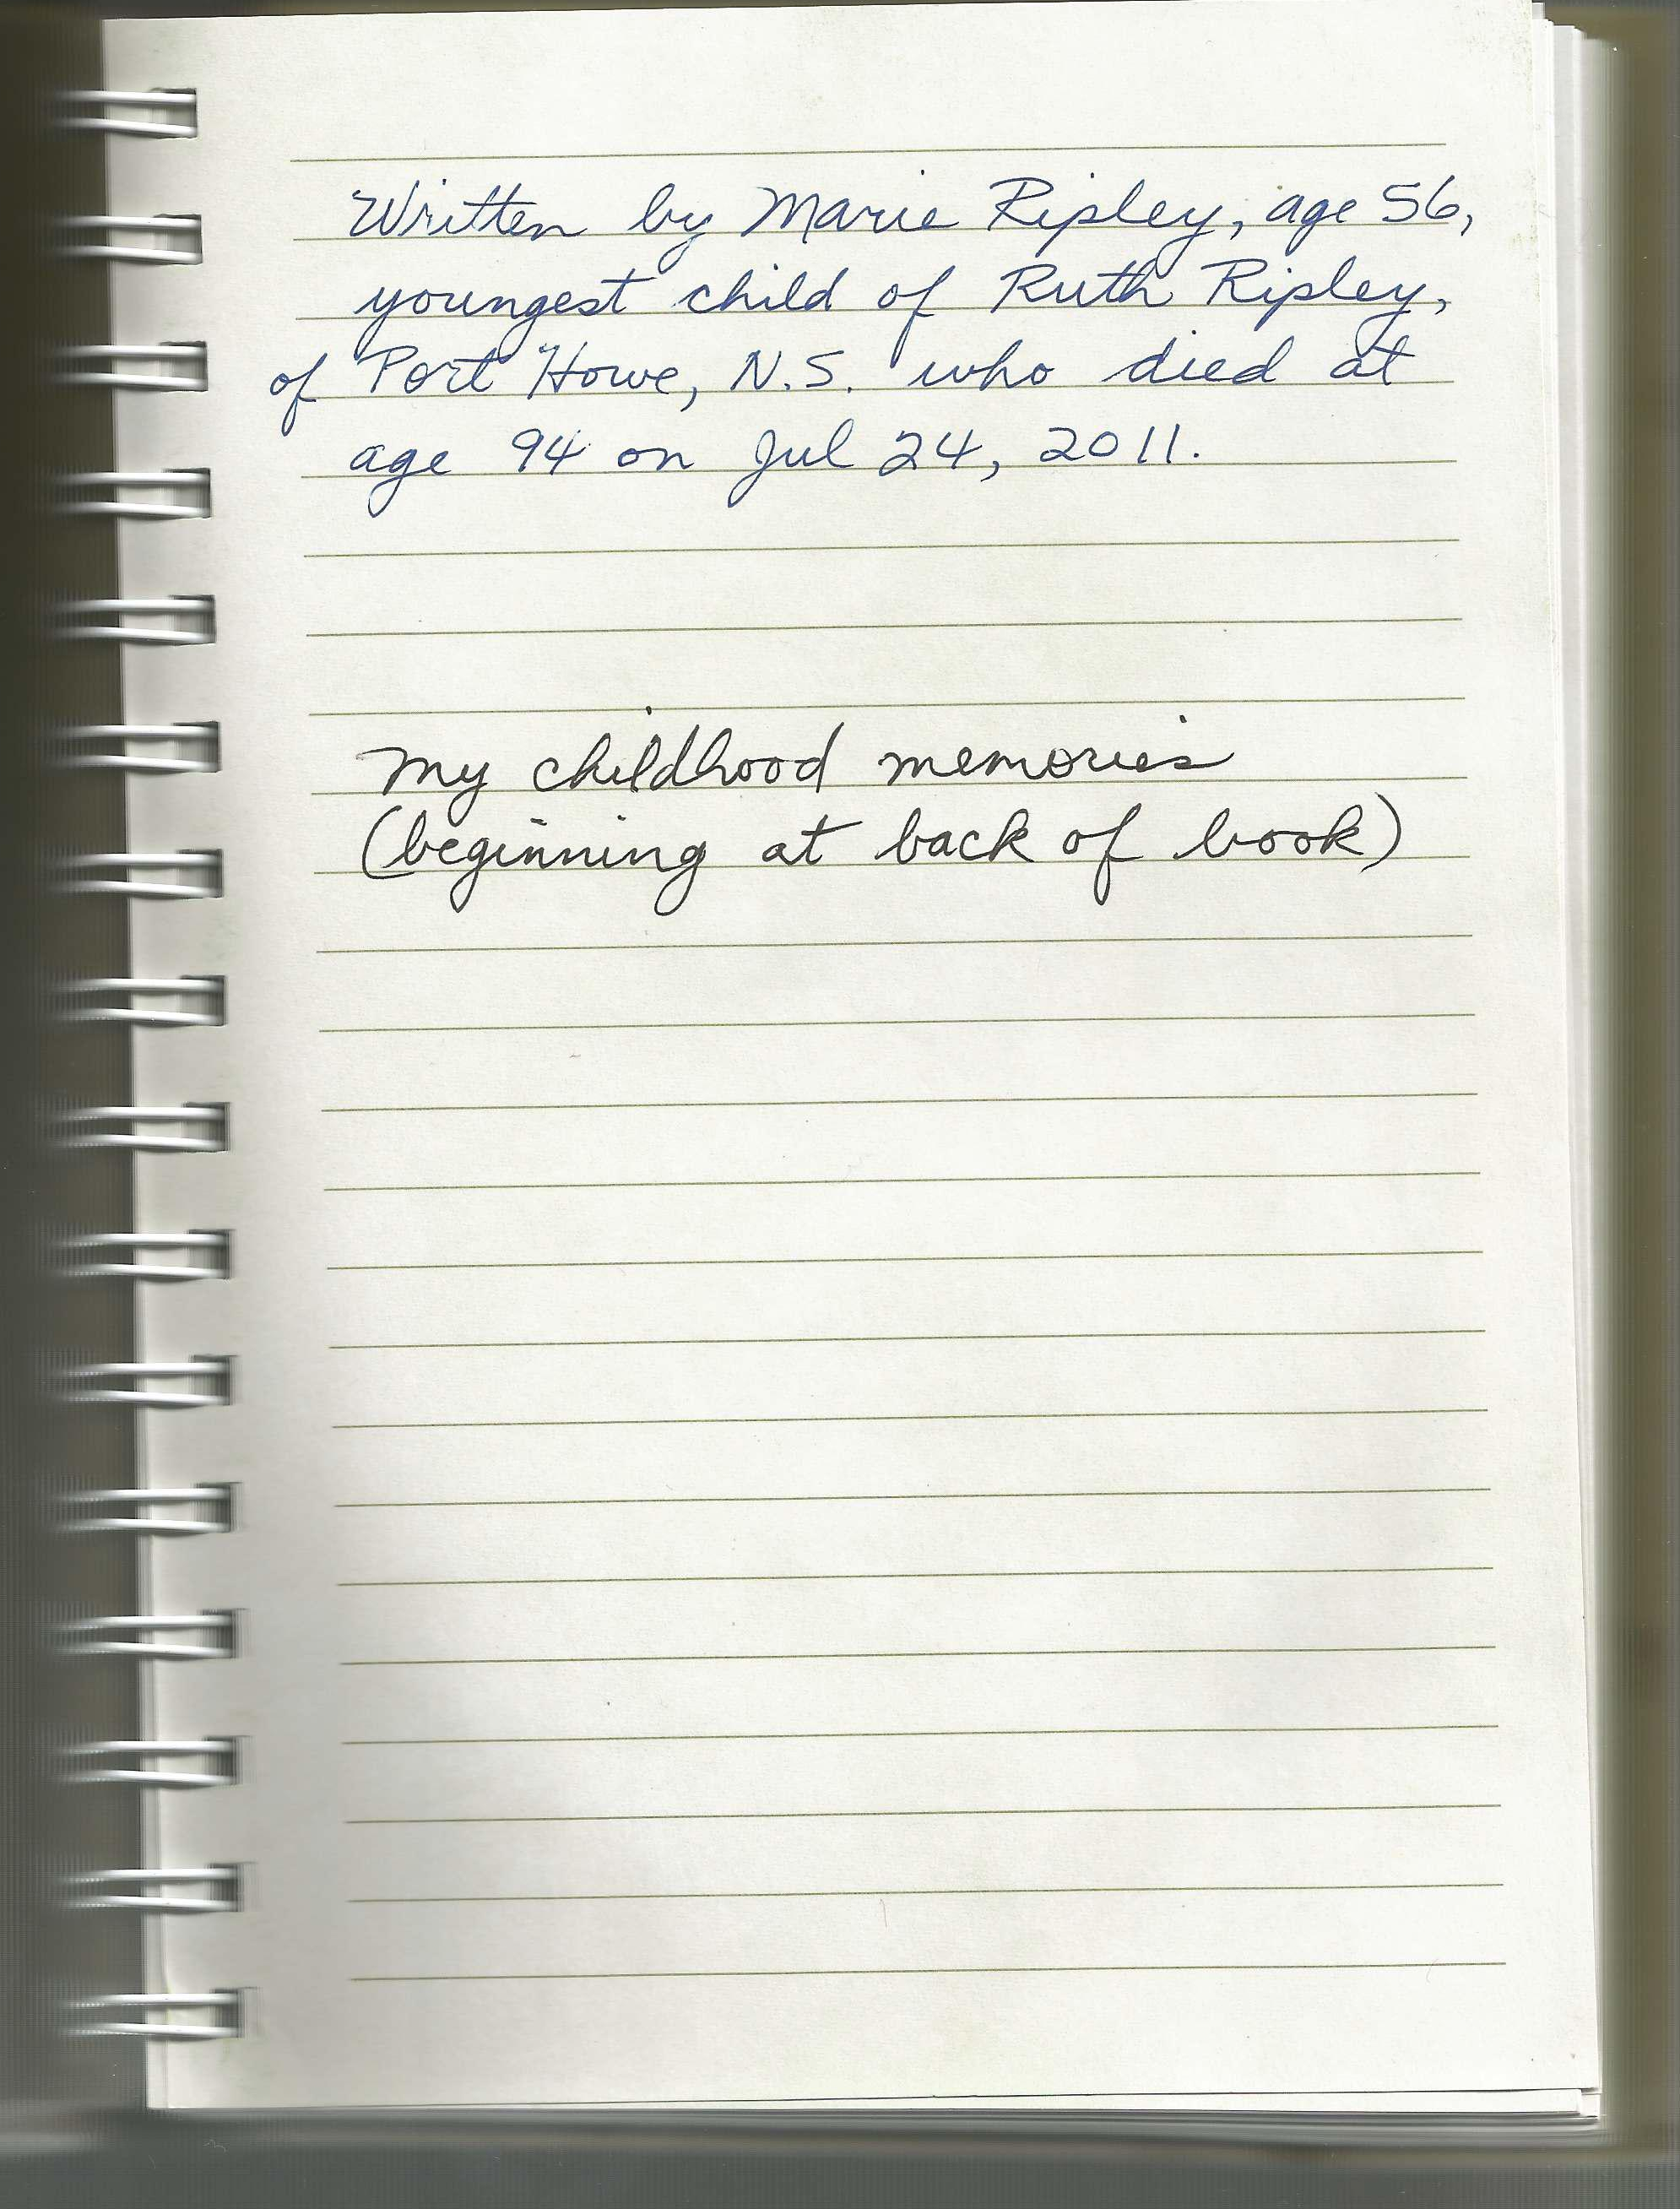 Written by Marie Ripley, age 56,
youngest child of Ruth Ripley,
of Port Howe, N.S. who died at
age 94 on Jul 24, 2011.
My childhood memories
(beginning at back of book)